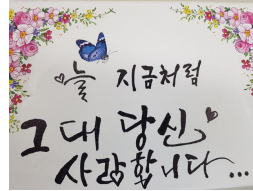 늘 지금처럼
그대 당신
사랑합니다...